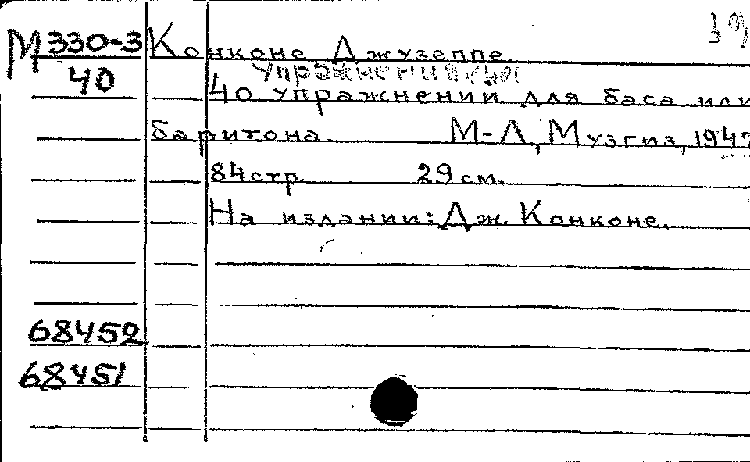 М330-3 Конконе Джузеппе.
40
40 упражнений для баса или
баритона М-Л, Музгиз, 1947
84стр 29см.
На издании: Дж. Конконе.
68452
68451